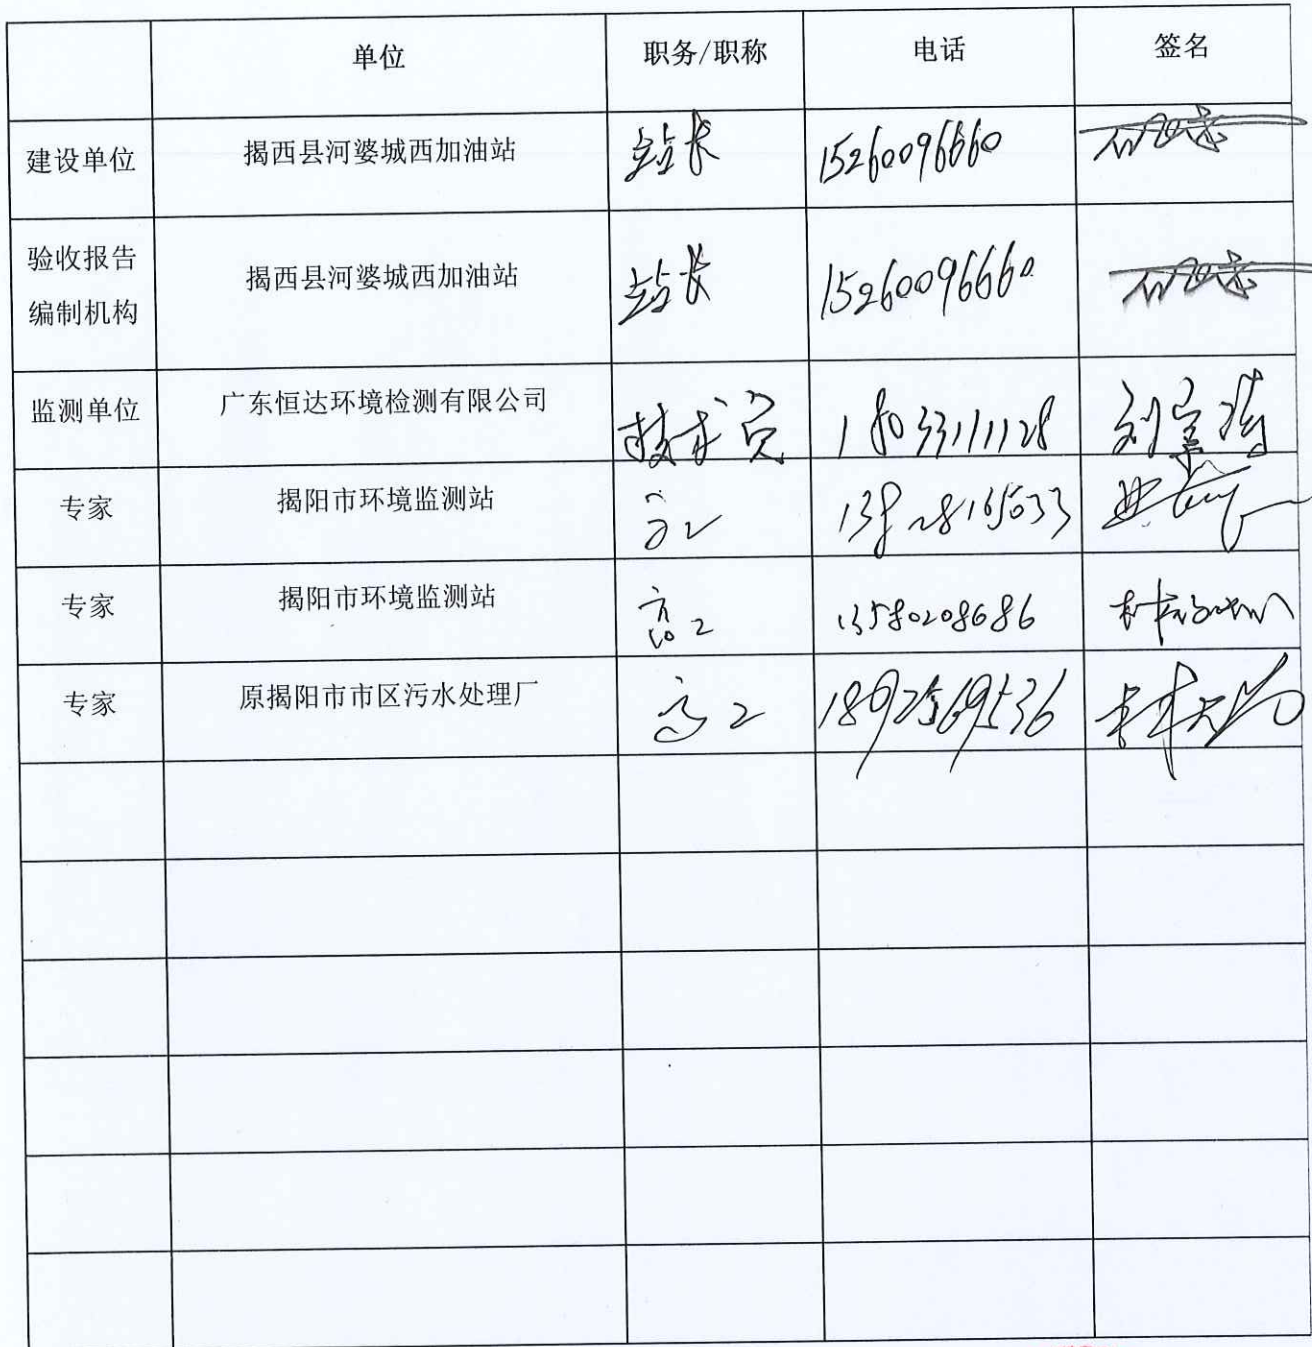 单位 职务/职称 电话 签名
建设单位 揭西县河婆城西加油站 站长 15260096660
验收报告
编制机构 揭西县河婆城西加油站 站长 15260096660
监测单位 广东恒达环境检测有限公司 技术员 18033111128
专家 揭阳市环境监测站 高工
专家 揭阳市环境监测站 高工 13580208686
专家 原揭阳市市区污水处理厂 高工